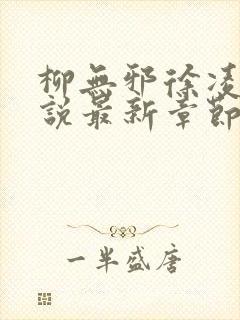 柳無邪徐凌
說最新章節
一半盛唐